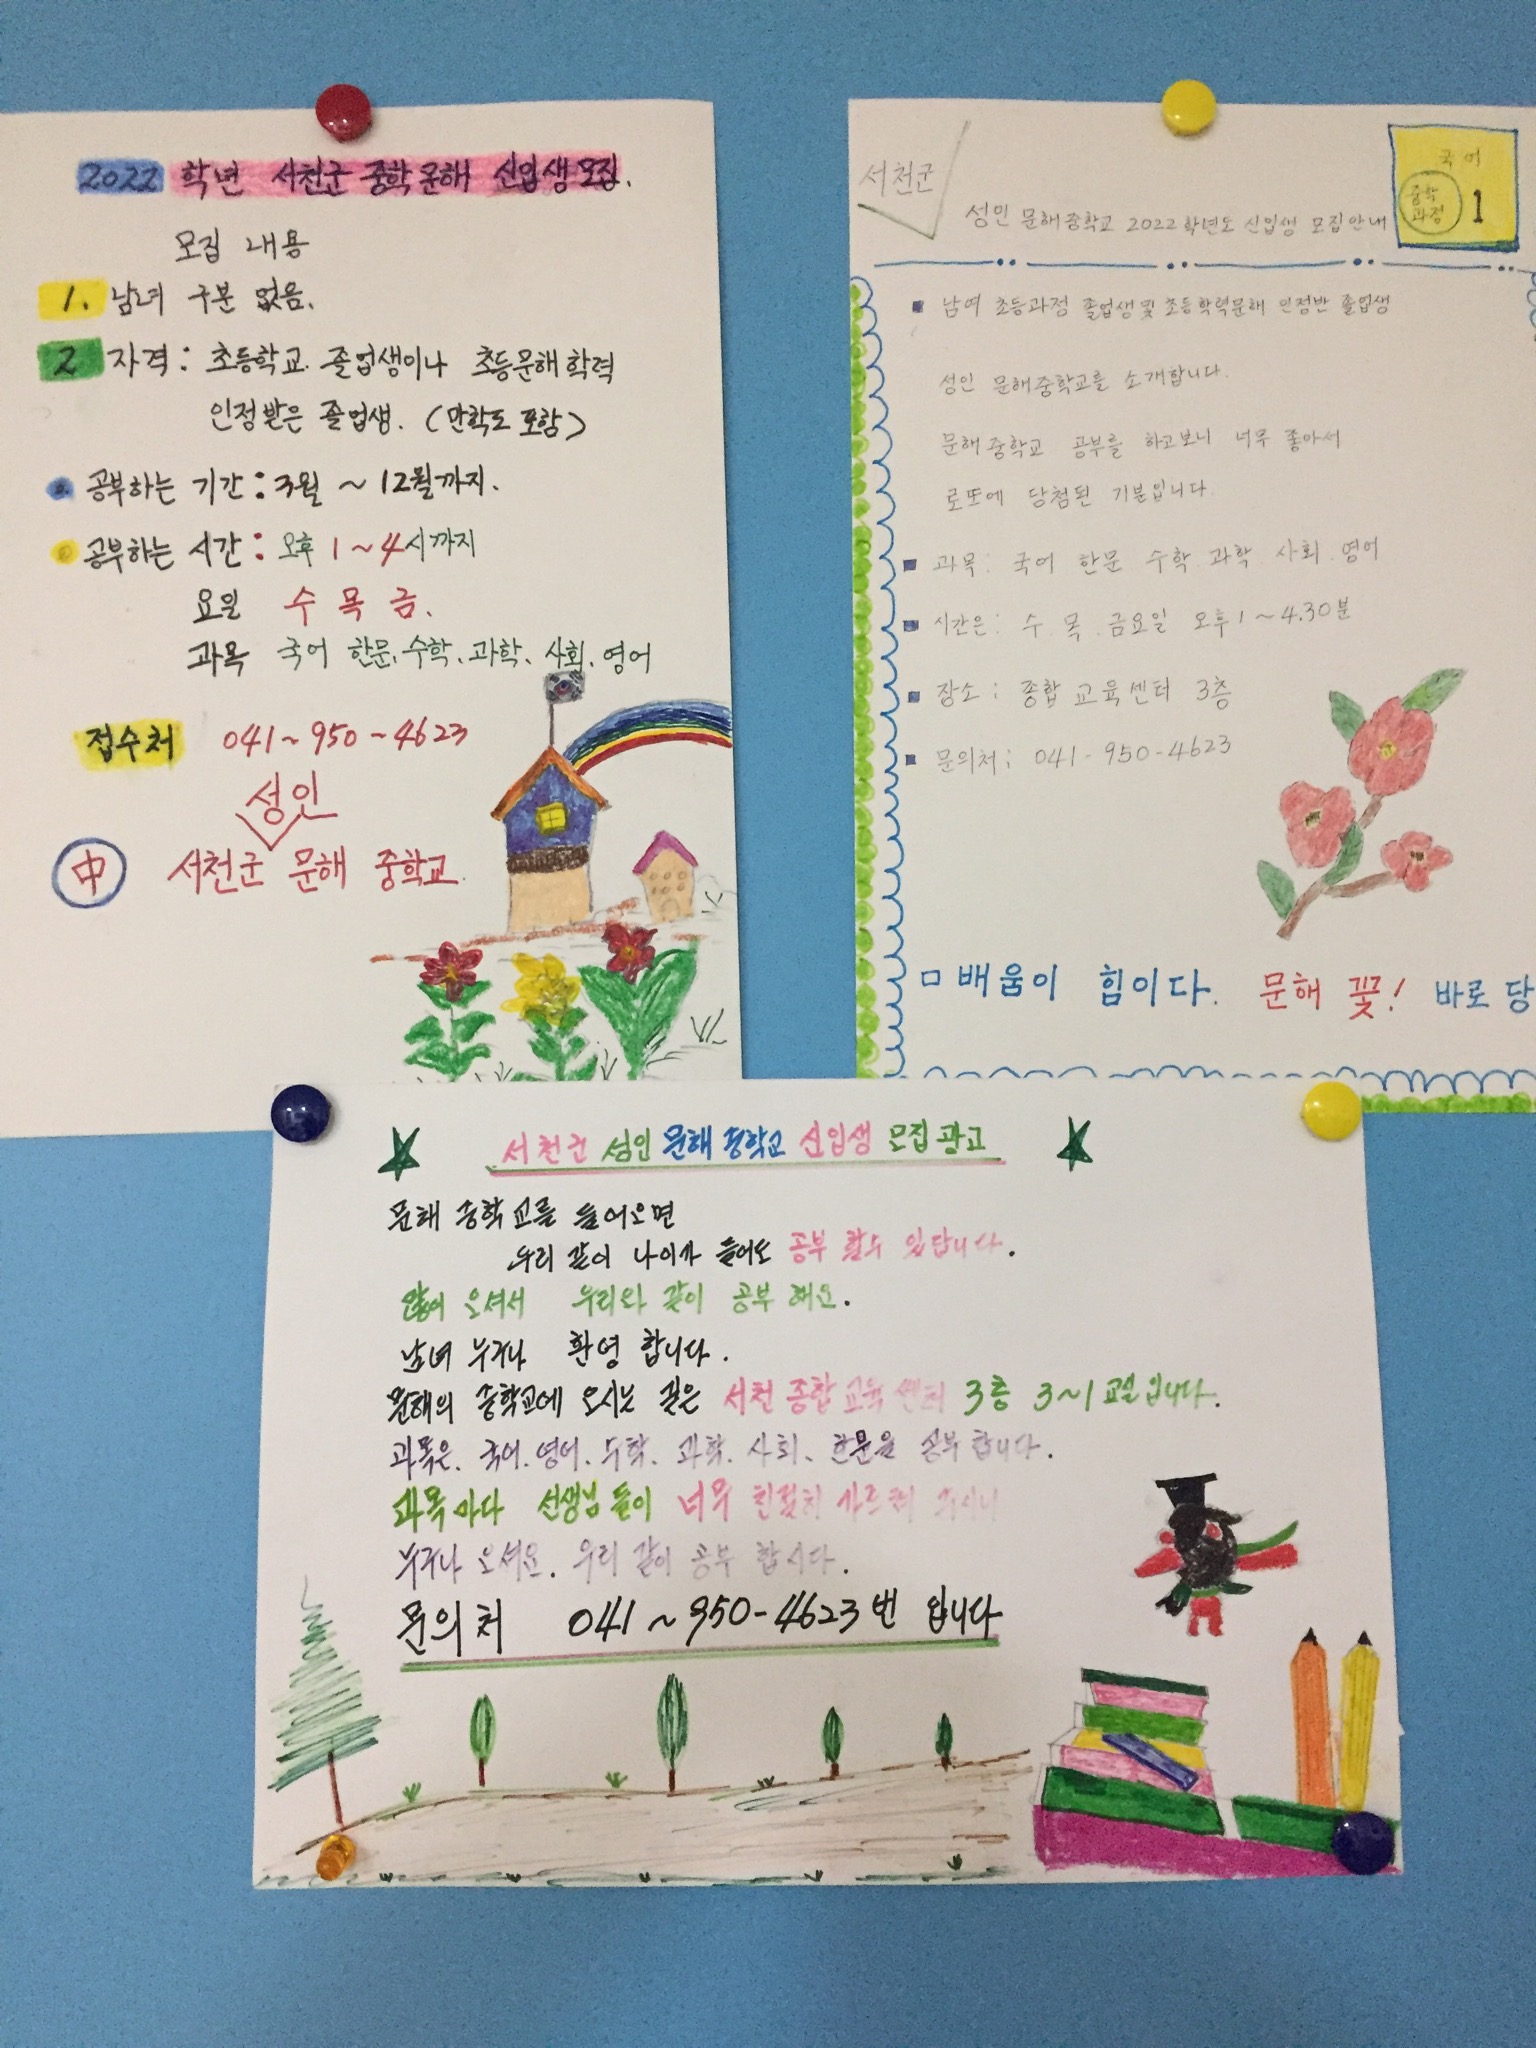 2022 학년 서천군 중학문해 신입생모집.
모집 내용
1. 남녀 구분 없음.
2 자격: 초등학교 졸업생이나 초등문해학력
인정받은 졸업생. (만학도 포함)
공부하는 기간: 3월 ~ 12월까지.
공부하는 시간: 오후 1~4시까지
요일 수 목 금.
과목 국어 한문, 수학, 과학, 사회, 영어
접수처 041~950~4623
성인
中 서천군 문해 중학교.
서천군
성인 문해중학교 2022학년도 신입생 모집안내
국어
중학
과정 1
남여 초등과정 졸업생및 초등학력문해 인정반 졸업생
성인 문해중학교를 소개합니다.
문해중학교 공부를 하고보니 너무 좋아서
로또에 당첨된 기분입니다.
과목: 국어 한문 수학 과학 사회. 영어
시간은: 수. 목. 금요일 오후 1~4.30분
장소: 종합 교육센터 3층
문의처: 041-950-4623
배움이 힘이다. 문해 꽃! 바로 당
서천군 성인 문해 중학교 신입생 모집광고
문해 중학교를 들어오면
우리 같이 나이가 들어도 공부 할수 있답니다.
많이 오셔서 우리와 같이 공부 해요.
남녀 누구나 환영 합니다.
문해의 중학교에 오시는 길은 서천 종합 교육 센터 3층 3~1 교실입니다.
과목은. 국어. 영어. 수학. 과학. 사회. 한문을 공부 합니다.
과목마다 선생님 들이 너무 친절히 가르쳐 주시니
누구나 오셔요. 우리 같이 공부 합시다.
문의처 041~950-4623번 입니다